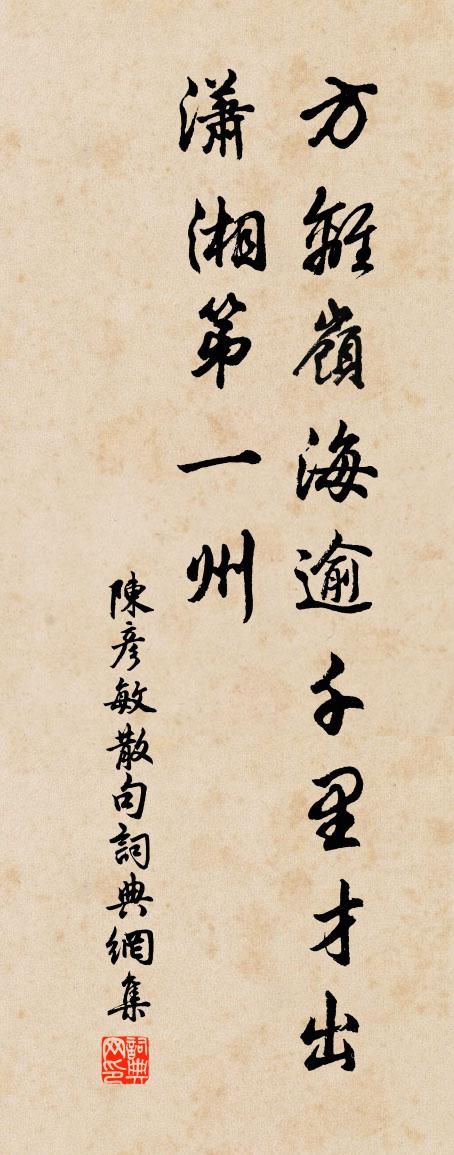 方離嶺海逾千里才出
瀟湘第一州
陳彥敏散句詞典網集
詞典网印